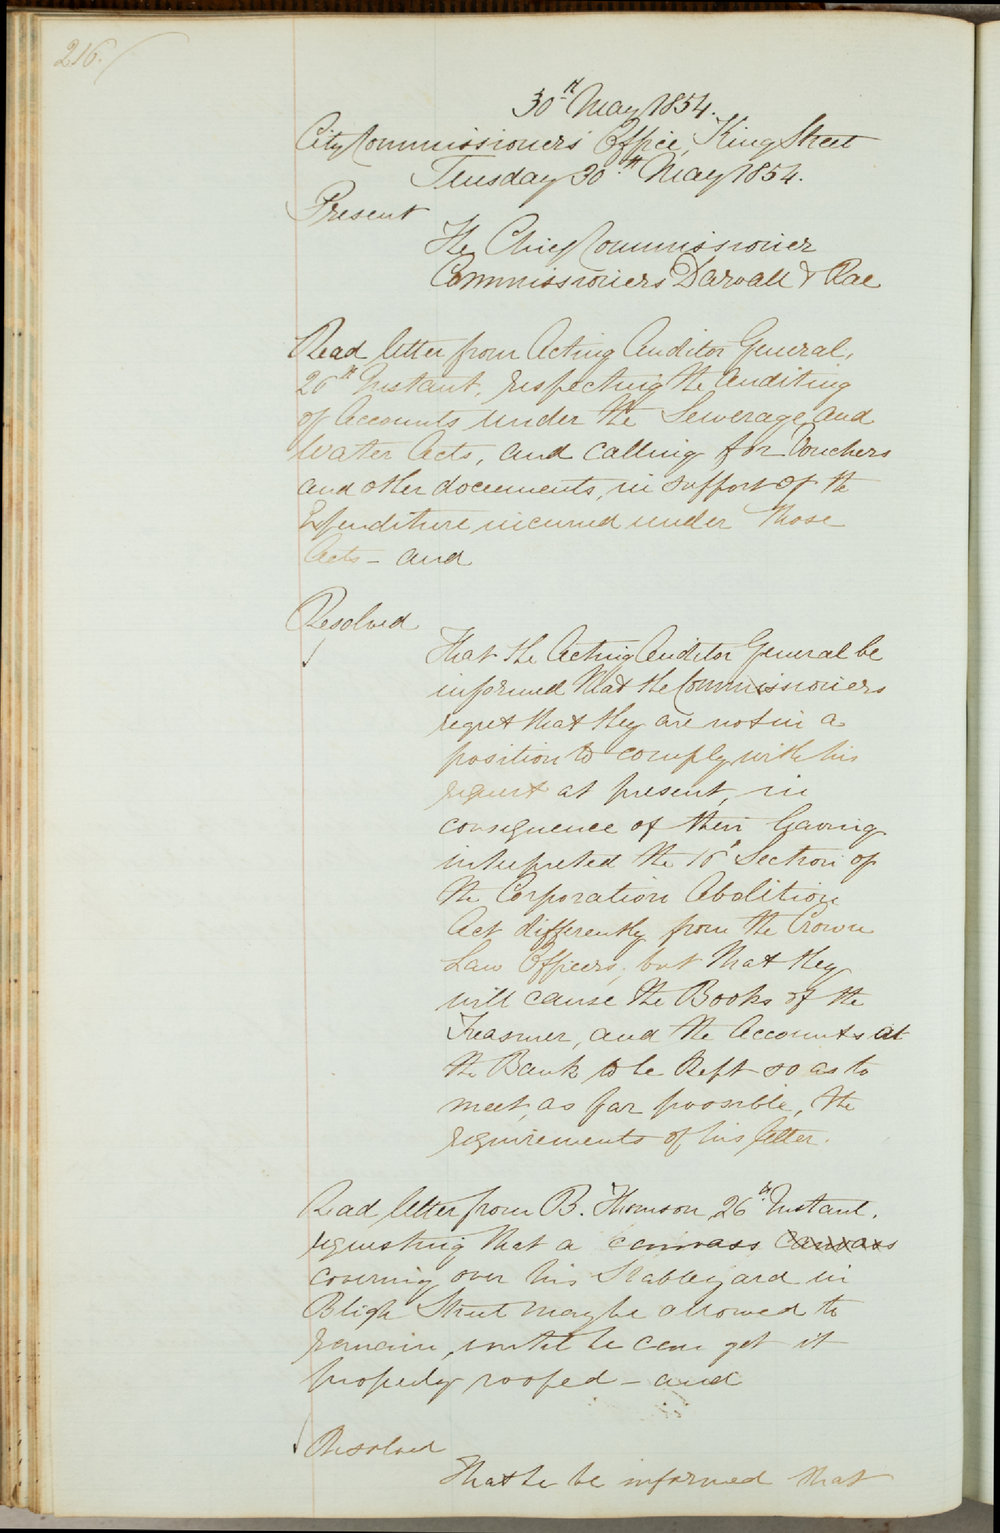 216.
30th May 1854.
City Commissioners' Office, King Street
Tuesday 30th May 1854.
Present
The Chief Commissioner
Commissioners Darvall & Rae
Read letter from Acting Auditor General,
26th Instant, respecting the Auditing
of Accounts under the Sewerage and
Water Acts, and calling for Vouchers
and other documents, in support of the
Expenditure incurred under those
Acts - and
Resolved
That the Acting Auditor General be
informed that the Commissioners
regret that they are not in a
position to comply with his
request at present, in
consequence of their having
interpreted the 10th Section of
the Corporation Abolition
Act differently from the Crown
Law Officers, but that they
will cause the Books of the
Treasurer, and the Accounts at
the Bank to be Kept so as to
meet, as far possible, the
requirements of his letter.
Read letter from B. Thomson 26th Instant,
requesting that a canvass canvass
covering over his Stableyard in
Bligh Street may be allowed to
remain, until he can get it
properly roofed - and
Resolved
That he be informed that